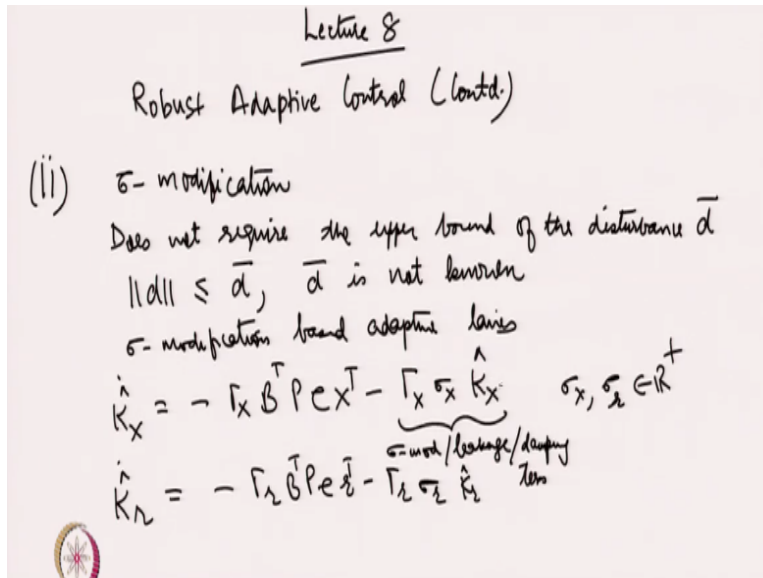 Lecture 8
Robust Adaptive Control (Contd.)
(ii) σ- modification
Does not require the upper bound of the disturbance d̄
||d|| ≤ d̄, d̄ is not known
σ- modification based adaptive laws
K̂̇_x = - Γ_x B^T P e x^T - Γ_x σ_x K̂_x σ_x, σ_r ∈ ℝ^+
σ-mod/leakage/damping
term
K̂̇_r = - Γ_r B^T P e r^T - Γ_r σ_r K̂_r